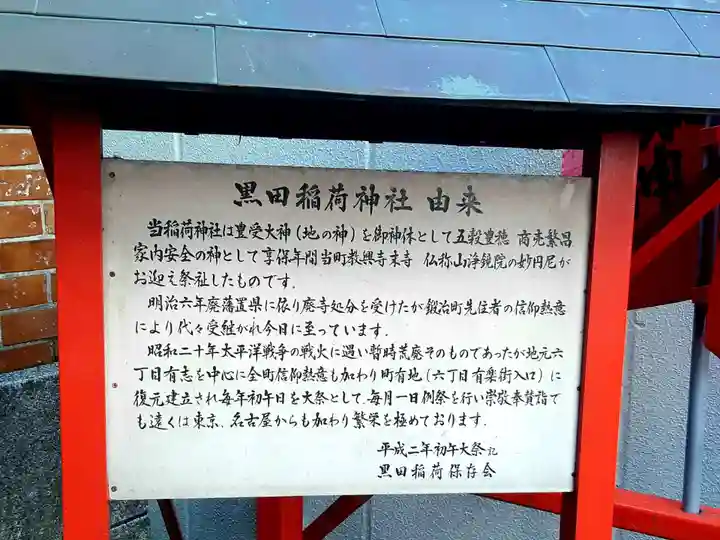 黒田稲荷神社 由来
当稲荷神社は豊受大神(地の神)を御神体として五穀豊穂 商売繁昌
家内安全の神として享保年間当町教興寺末寺 仏弥山浄鏡院の妙円尼が
お迎え祭祉したものです.
明治六年廃藩置県に依り廃寺処分を受けたが鍛冶町先住者の信仰熱意
により代々受継がれ今日に至っています.
昭和二十年太平洋戦争の戦火に遇い暫時荒廃そのものであったが地元六
丁目有志を中心に全町信仰熱意も加わり町有地(六丁目有楽街入口)に
復元建立され毎年初午日を大祭として、毎月一日例祭を行い崇敬奉賛詣で
も遠くは東京、名古屋からも加わり繁栄を極めております.
平成二年初午大祭 記
黒田稲荷保存会